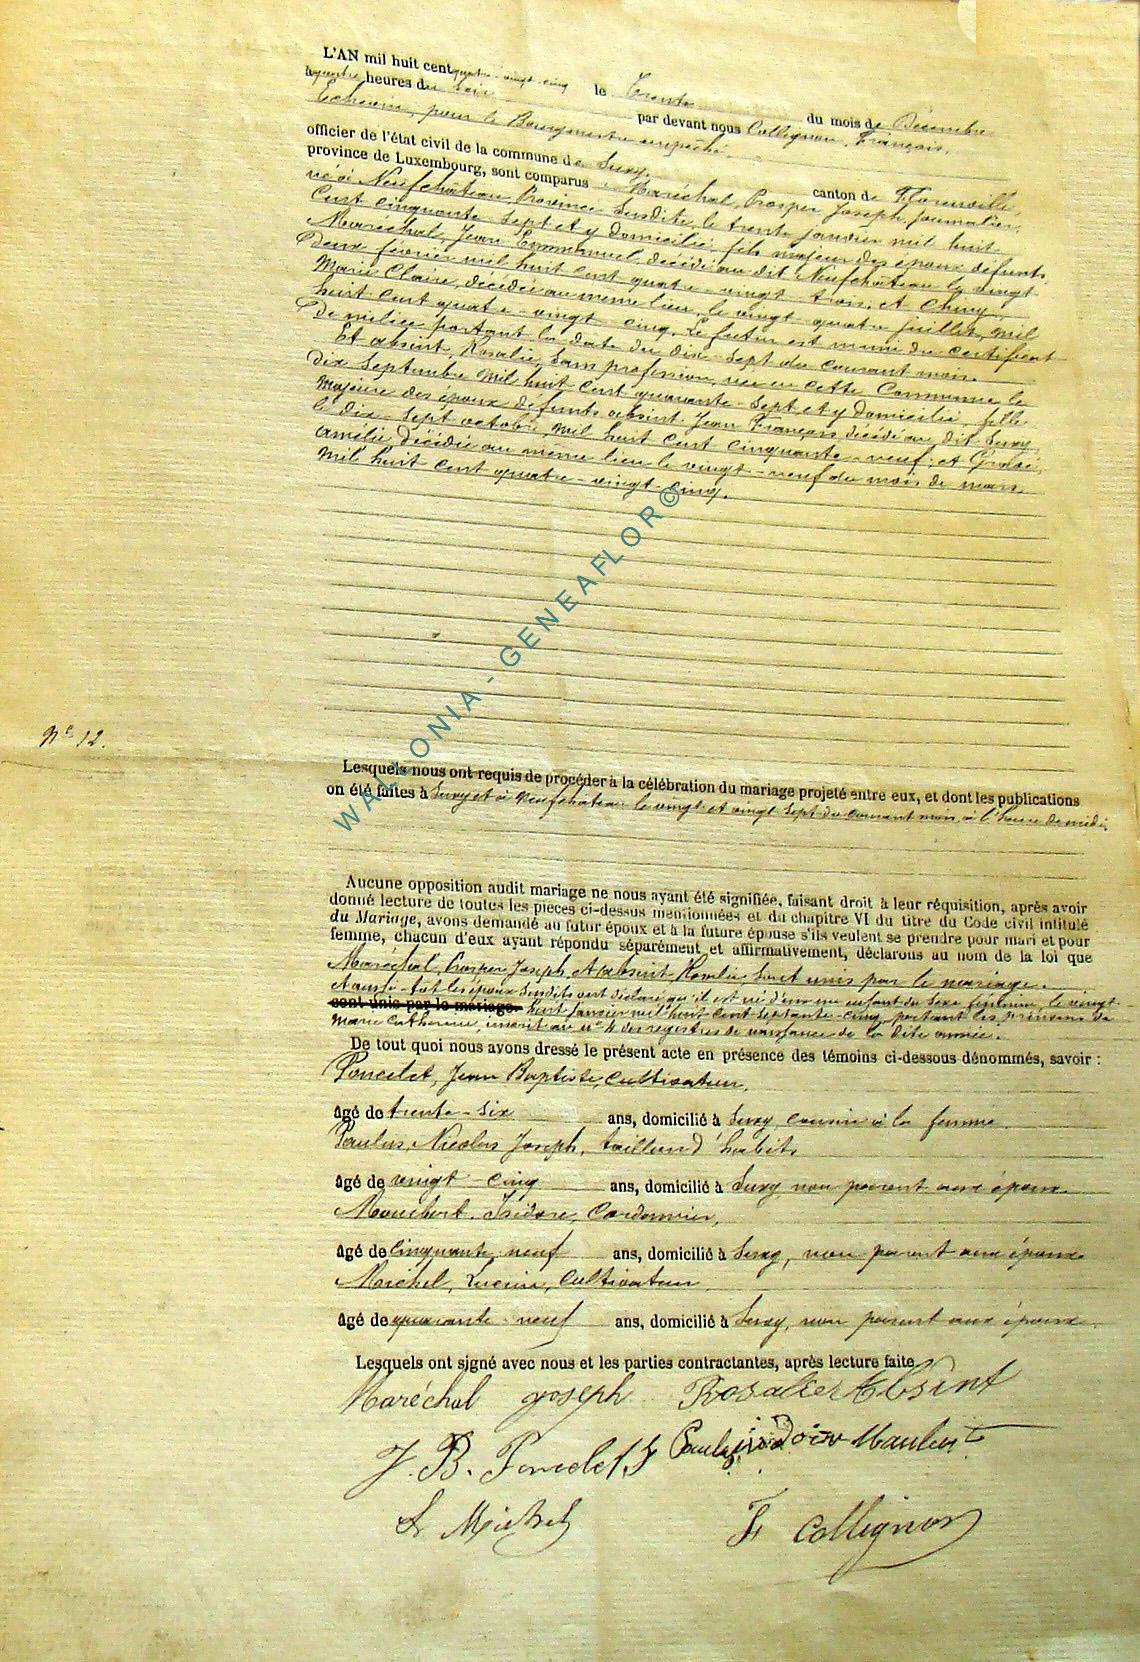 L'AN mil huit cent quatre-vingt-cinq le Trente du mois de Décembre
à quatre heures du Soir par devant nous Collignon, François,
Echevin, pour le Bourgmestre empêché.
officier de l'état civil de la commune de Suxy, canton de Florenville,
province de Luxembourg, sont comparus Maréchal, Prosper Joseph, journalier,
né à Neufchâteau, Province Susdite, le trente janvier mil huit
Cent cinquante Sept et y domicilié, fils majeur des époux défunts
Maréchal, Jean Emmanuel, décédé au dit Neufchâteau le vingt
Deux février mil huit cent quatre-vingt-trois, et Chiny,
Marie Claire, décédée au même lieu, le vingt quatre juillet, mil
huit cent quatre-vingt cinq. Le futur est muni du certificat
De milice portant la date du dix-sept du courant mois.
Et absint, Rosalie, Sans profession, née en cette Commune le
dix Septembre Mil huit cent quarante-Sept et y domicilié, fille
Majeure des époux défunts absint Jean François décédé au dit Suxy
le dix-sept octobre, mil huit cent cinquante-neuf; et
amélie Décédée au même lieu le vingt-neuf du mois de mars,
Mil huit cent quatre-vingt-cinq.
N° 12.
Lesquels nous ont requis de procéder à la célébration du mariage projeté entre eux, et dont les publications
on été faites à Suxy et à Neufchâteau le vingt et vingt Sept du courant mois, à l'heure de midi,
Aucune opposition audit mariage ne nous ayant été signifiée, faisant droit à leur réquisition, après avoir
donné lecture de toutes les pièces ci-dessus mentionnées et du chapitre VI du titre du Code civil intitulé
du Mariage, avons demandé au futur époux et à la future épouse s'ils veulent se prendre pour mari et pour
femme, chacun d'eux ayant répondu séparément et affirmativement, déclarons au nom de la loi que
Maréchal, Prosper Joseph, et absint Rosalie, Sont unis par le mariage.
et aussi-tôt les époux Susdits ont déclaré qu'il est né d'eux un enfant du Sexe féminin, le vingt
sont unis par le mariage. huit janvier mil huit cent Septante-cinq, portant les prénoms de
Marie Catherine, inscrit au n° 4 des registres de naissance de la dite année.
De tout quoi nous avons dressé le présent acte en présence des témoins ci-dessous dénommés, savoir :
Poncelet, Jean Baptiste, Cultivateur,
âgé de trente-six ans, domicilié à Suxy, cousin à la femme
Paulus, Nicolas Joseph, tailleur d'habits
âgé de vingt cinq ans, domicilié à Suxy non parent aux époux
Maulbert, Isidore, Cordonnier,
âgé de cinquante neuf ans, domicilié à Suxy, non parent aux époux
Michel, Lucien, Cultivateur
âgé de quarante-neuf ans, domicilié à Suxy, non parent aux époux
Lesquels ont signé avec nous et les parties contractantes, après lecture faite.
Maréchal joseph Rosalie Absint
J. B. Poncelet Paulus
L Michel F Collignon
WALLONIA - GENEAFLOR©